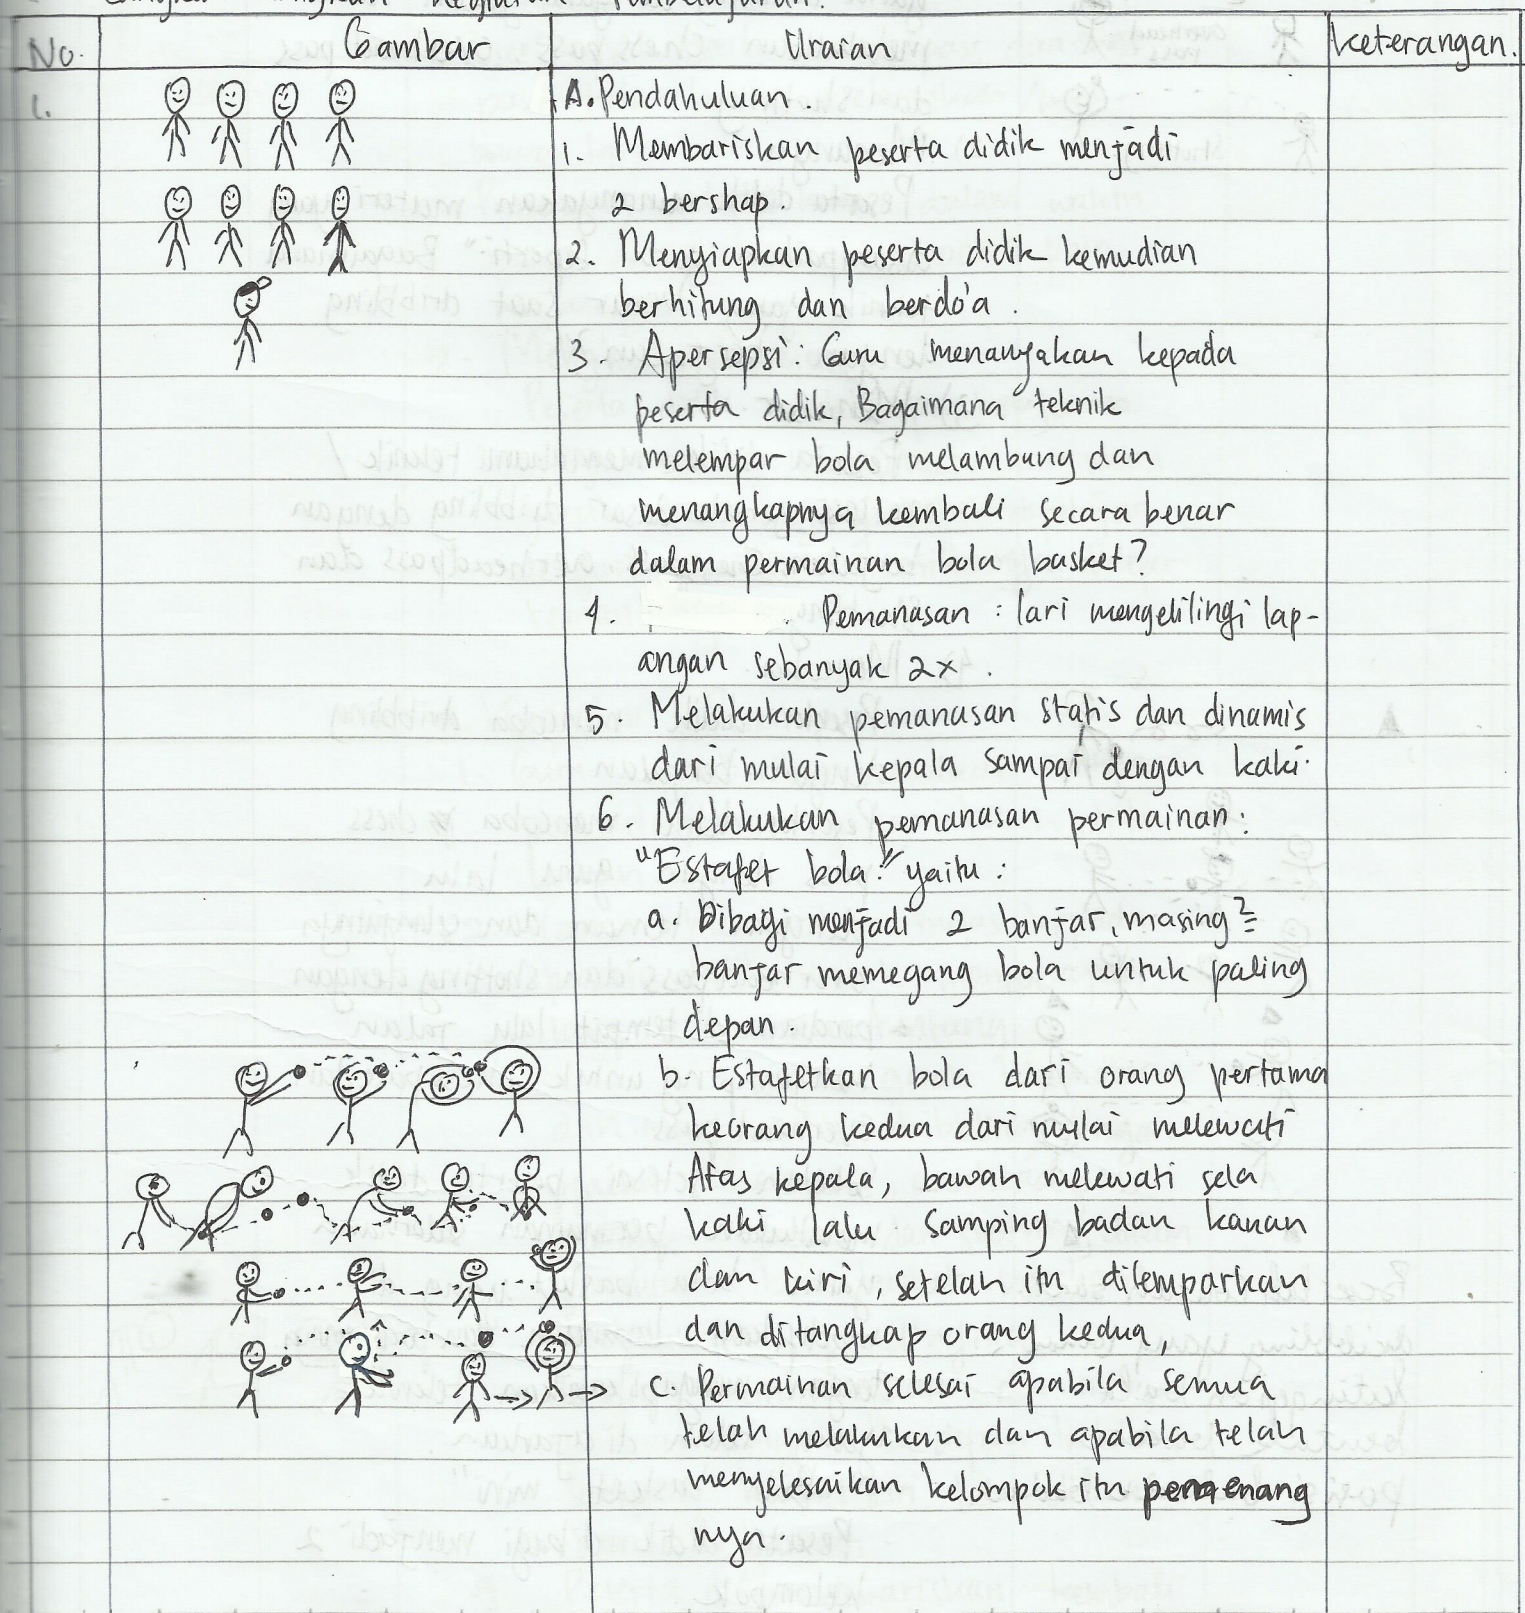 kegiatan Pembelajaran.
No. Gambar Uraian Keterangan.
1. A. Pendahuluan.
1. Membariskan peserta didik menjadi
2 bershap.
2. Menyiapkan peserta didik kemudian
berhitung dan berdo'a.
3. Apersepsi: Guru menanyakan kepada
peserta didik, Bagaimana teknik
melempar bola melambung dan
menangkapnya kembali secara benar
dalam permainan bola basket?
4. Pemanasan : lari mengelilingi lap-
angan sebanyak 2x.
5. Melakukan pemanasan statis dan dinamis
dari mulai kepala sampai dengan kaki.
6. Melakukan pemanasan permainan:
"Estafet bola." yaitu :
a. Dibagi menjadi 2 banjar, masing2
banjar memegang bola untuk paling
depan.
b. Estafetkan bola dari orang pertama
keorang kedua dari mulai melewati
Atas kepala, bawah melewati sela
kaki lalu samping badan kanan
dan kiri, setelah itu dilemparkan
dan ditangkap orang kedua,
c. Permainan selesai apabila semua
telah melakukan dan apabila telah
menyelesaikan kelompok itu pemenang
nya.